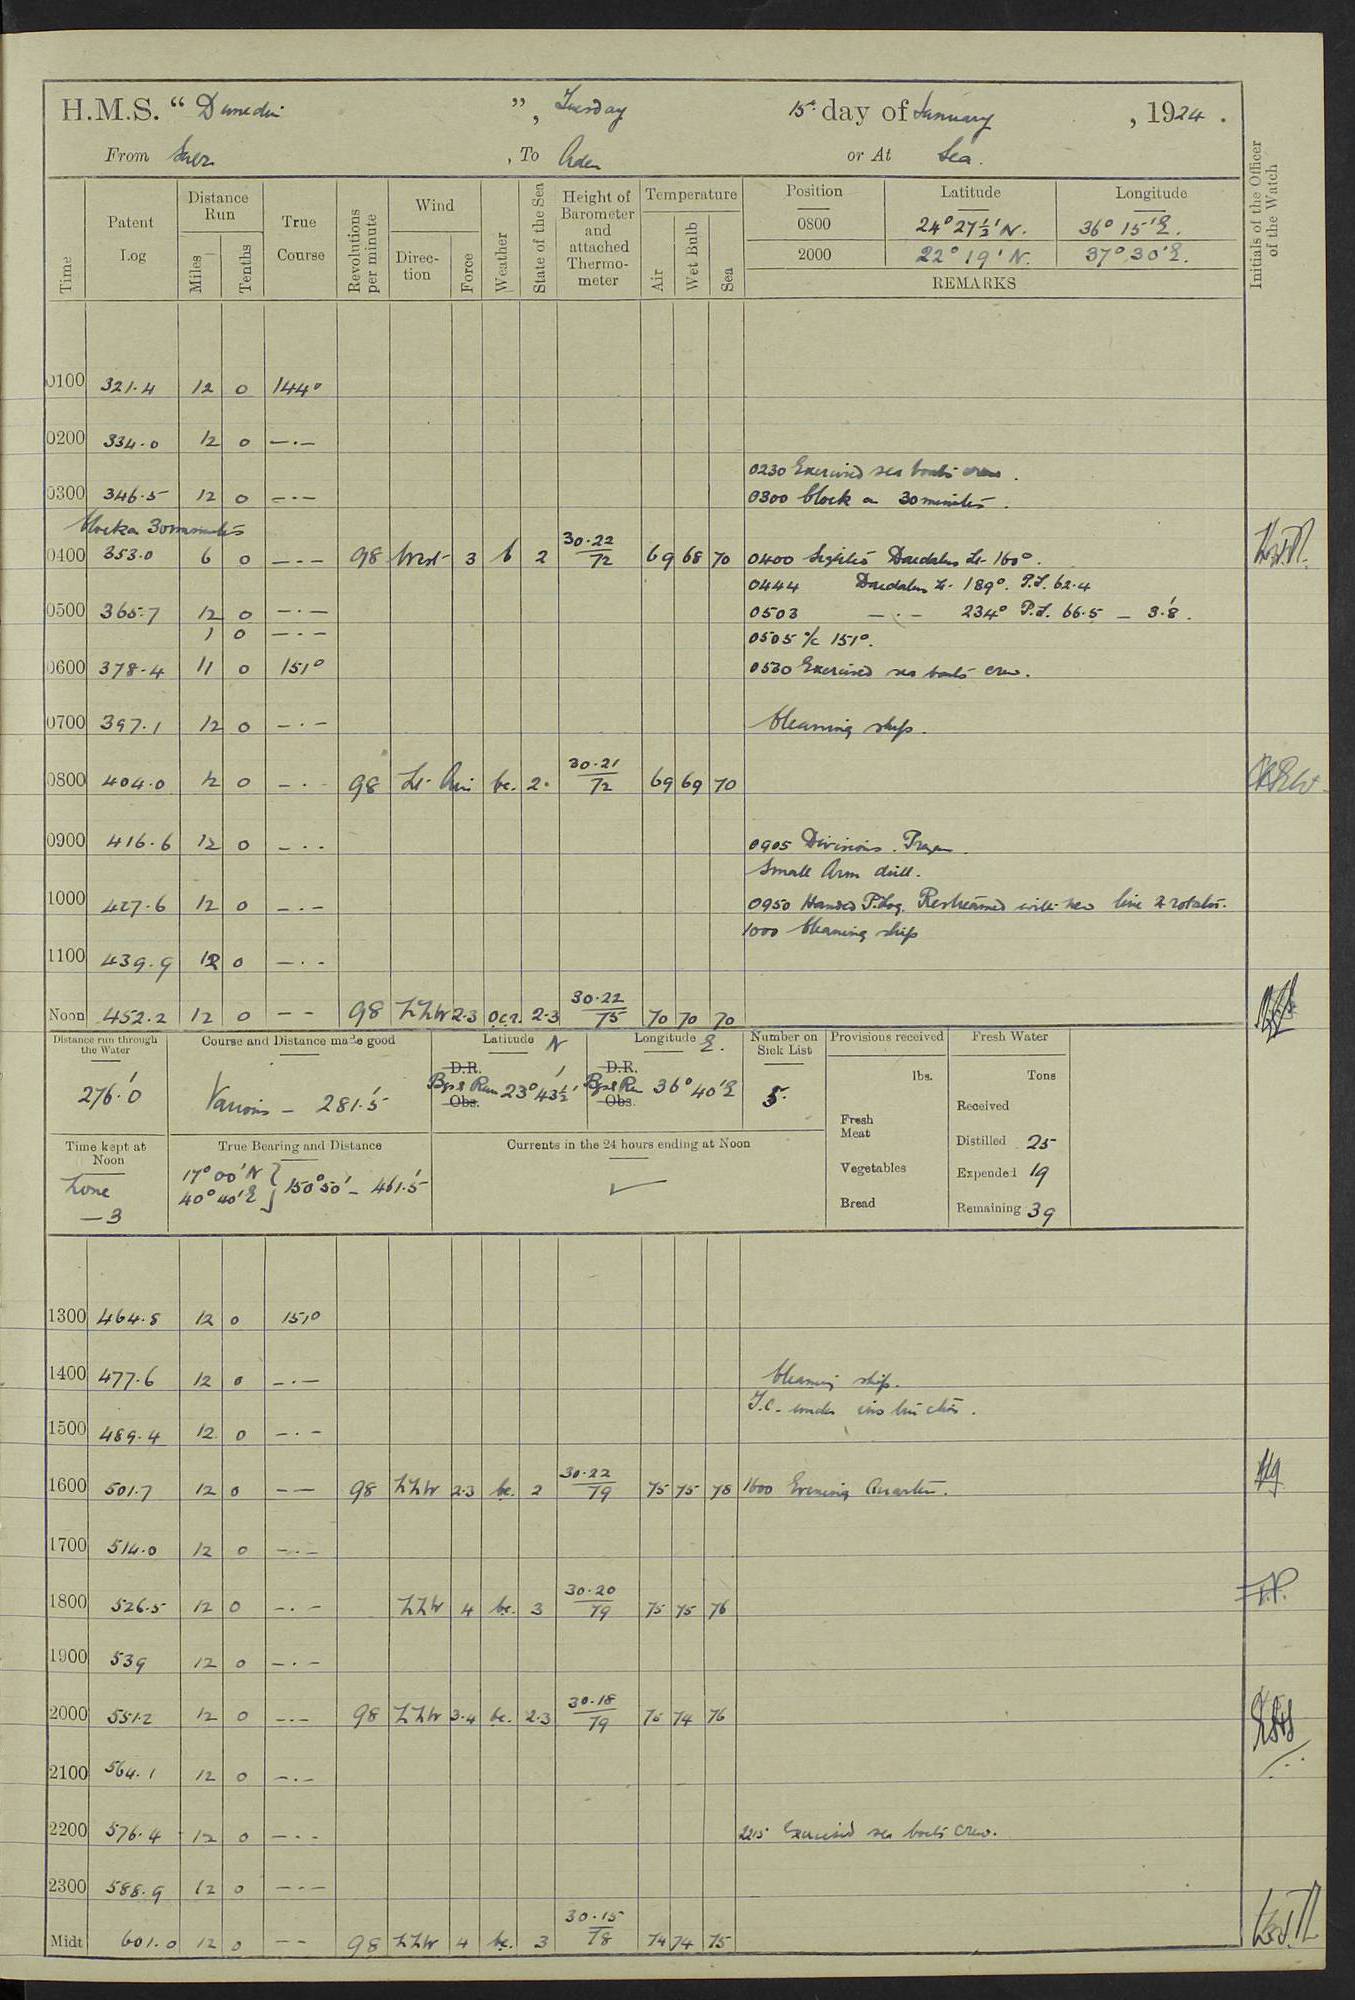 H.M.S. “ Dunedin ”, Tuesday 15th day of January , 1924 .
From Suez , To Aden or At Sea.
Time
Patent Log
Distance Run
Miles
Tenths
True Course
Revolutions per minute
Wind
Direction
Force
Weather
State of the Sea
Height of Barometer and attached Thermometer
Temperature
Air
Wet Bulb
Sea
Position Latitude Longitude
0800 24° 27½' N. 36° 15' E.
2000 22° 19' N. 37° 30' E.
REMARKS
Initials of the Officer of the Watch
0100 321.4 12 0 144°
0200 334.0 12 0 —.—
0230 Exercised sea boats crew.
0300 346.5 12 0 —.— 0300 Clock on 30 minutes.
Clock on 30 minutes
0400 353.0 6 0 —.— 98 West 3 b 2 30.22/72 69 68 70 0400 Sighted Daedalus Lt. 160°.
0444 Daedalus Lt. 189°. P.L. 62.4
0500 365.7 12 0 —.— 0503 —.— 234° P.L. 66.5 — 3.'8.
1 0 —.— 0505 a/c 151°.
0600 378.4 11 0 151° 0530 Exercised sea boats crew.
0700 397.1 12 0 —.— Cleaning ship.
0800 404.0 12 0 —.— 98 Lt. Airs bc. 2. 30.21/72 69 69 70
0900 416.6 12 0 —.— 0905 Divisions. Prayers.
Small Arm drill.
1000 427.6 12 0 —.— 0950 Handed P.Log. Restreamed with new line & rotator.
1000 Cleaning ship
1100 439.9 12 0 —.—
Noon 452.2 12 0 — — 98 NNW 2-3 2-3 30.22/75 70 70 70
Distance run through the Water
276.'0
Course and Distance made good
Various — 281.'5
Latitude N
D.R.
Bgs & Run 23° 43½'
Obs.
Longitude E.
D.R.
Bgs & Run 36° 40' E
Obs.
Number on Sick List
5.
Provisions received
lbs.
Fresh Meat
Vegetables
Bread
Fresh Water
Tons
Received
Distilled 25
Expended 19
Remaining 39
Time kept at Noon
Zone
—3
True Bearing and Distance
17° 00' N
40° 40' E } 150° 50' — 461.'5
Currents in the 24 hours ending at Noon
✓
1300 464.8 12 0 151°
1400 477.6 12 0 —.— Cleaning ship.
T.C. under instruction.
1500 489.4 12 0 —.—
1600 501.7 12 0 — — 98 NNW 2.3 bc. 2 30.22/79 75 75 78 1600 Evening Quarters.
1700 514.0 12 0 —.—
1800 526.5 12 0 —.— NNW 4 bc. 3 30.20/79 75 75 76
1900 539 12 0 —.—
2000 551.2 12 0 —.— 98 NNW 3.4 bc. 2.3 30.18/79 75 74 76
2100 564.1 12 0 —.—
2200 576.4 12 0 —.— 2215 Exercised sea boats crew.
2300 588.9 12 0 —.—
Midt 601.0 12 0 — — 98 NNW 4 bc. 3 30.15/78 74 74 75